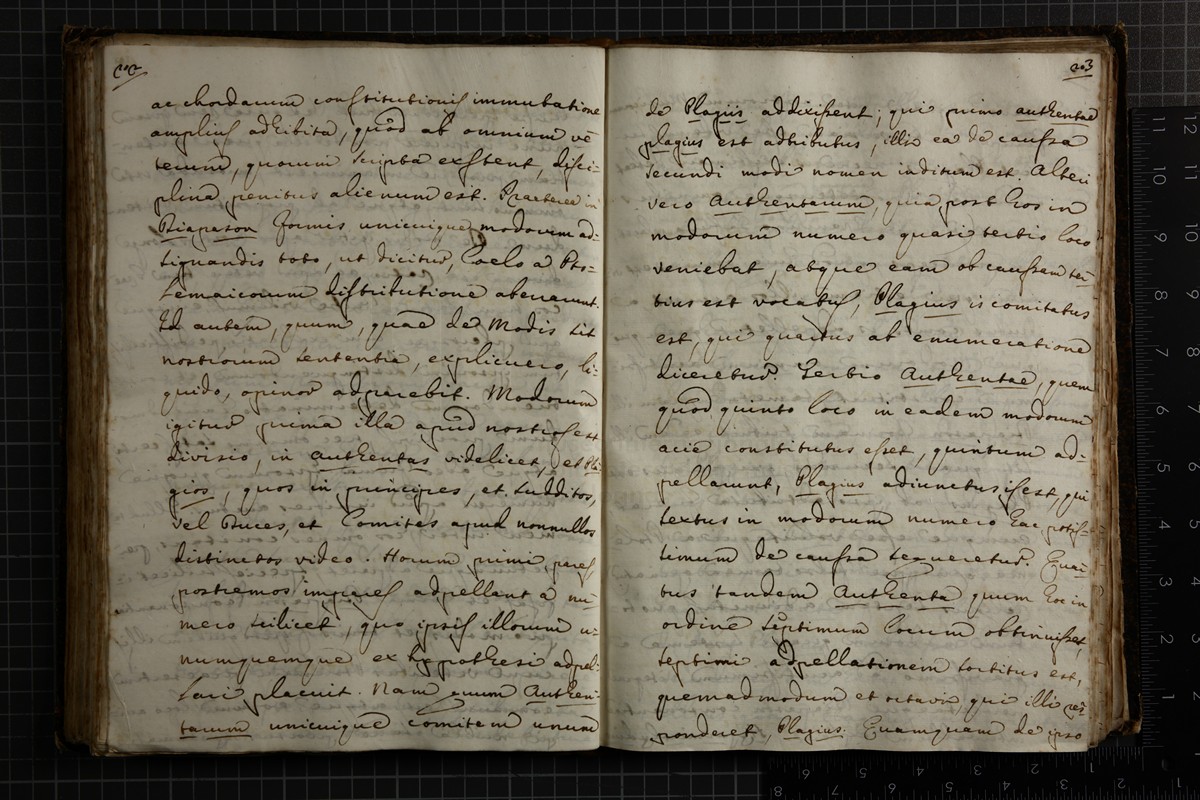 202
ac chordarum constitutionis immutatione
amplius adhibita, quod ab omnium ve
terum, quorum scripta exstent, disci-
plina penitus alienum est. Praeterea in
Diapason formis unicuique modorum ad-
signandis toto, ut dicitur, Coelo a Pto-
lemaicorum distributione aberrarunt.
Id autem, quum, quae de Modis sit
nostrorum sententia, explicuero, li-
quido, opinor adparebit. Modorum
igitur prima illa apud nostros est
divisio, in authentas videlicet, et Pla
gios, quos in principes, et subditos,
vel Duces, et Comites apud nonnullos
distinctos video. Horum primi pares
postremos impares adpellant a nu-
mero scilicet, quo ipsis illorum u-
numquemque ex hypothesi adpel-
lari placuit. Nam quum Authen-
tarum unicuique comitem unum
203
de Plagiis addixissent; qui primo authentae
plagius est adtributus, illi ea de caussa
secundi modi nomen inditum est. Alteri
vero Authentarum, quia post hos in
modorum numero quasi tertio loco
veniebat, atque eam ob caussam ter-
tius est vocatus, Plagius is comitatus
est, qui quartus ab enumeratione
diceretur. Tertio Authentae, quem
quod quinto loco in eadem modorum
acie constitutus esset, quintum ad-
pellarunt, Plagius adiunctus is est, qui
sextus in modorum numero hac potis-
simum de caussa sequeretur. Quar
tus tandem Authenta quum hoc in
ordine septimum locum obtinuisset,
septimi adpellationem sortitus est,
quemadmodum et octavi qui illi res
ponderet, Plagius. Quamquam de ipso